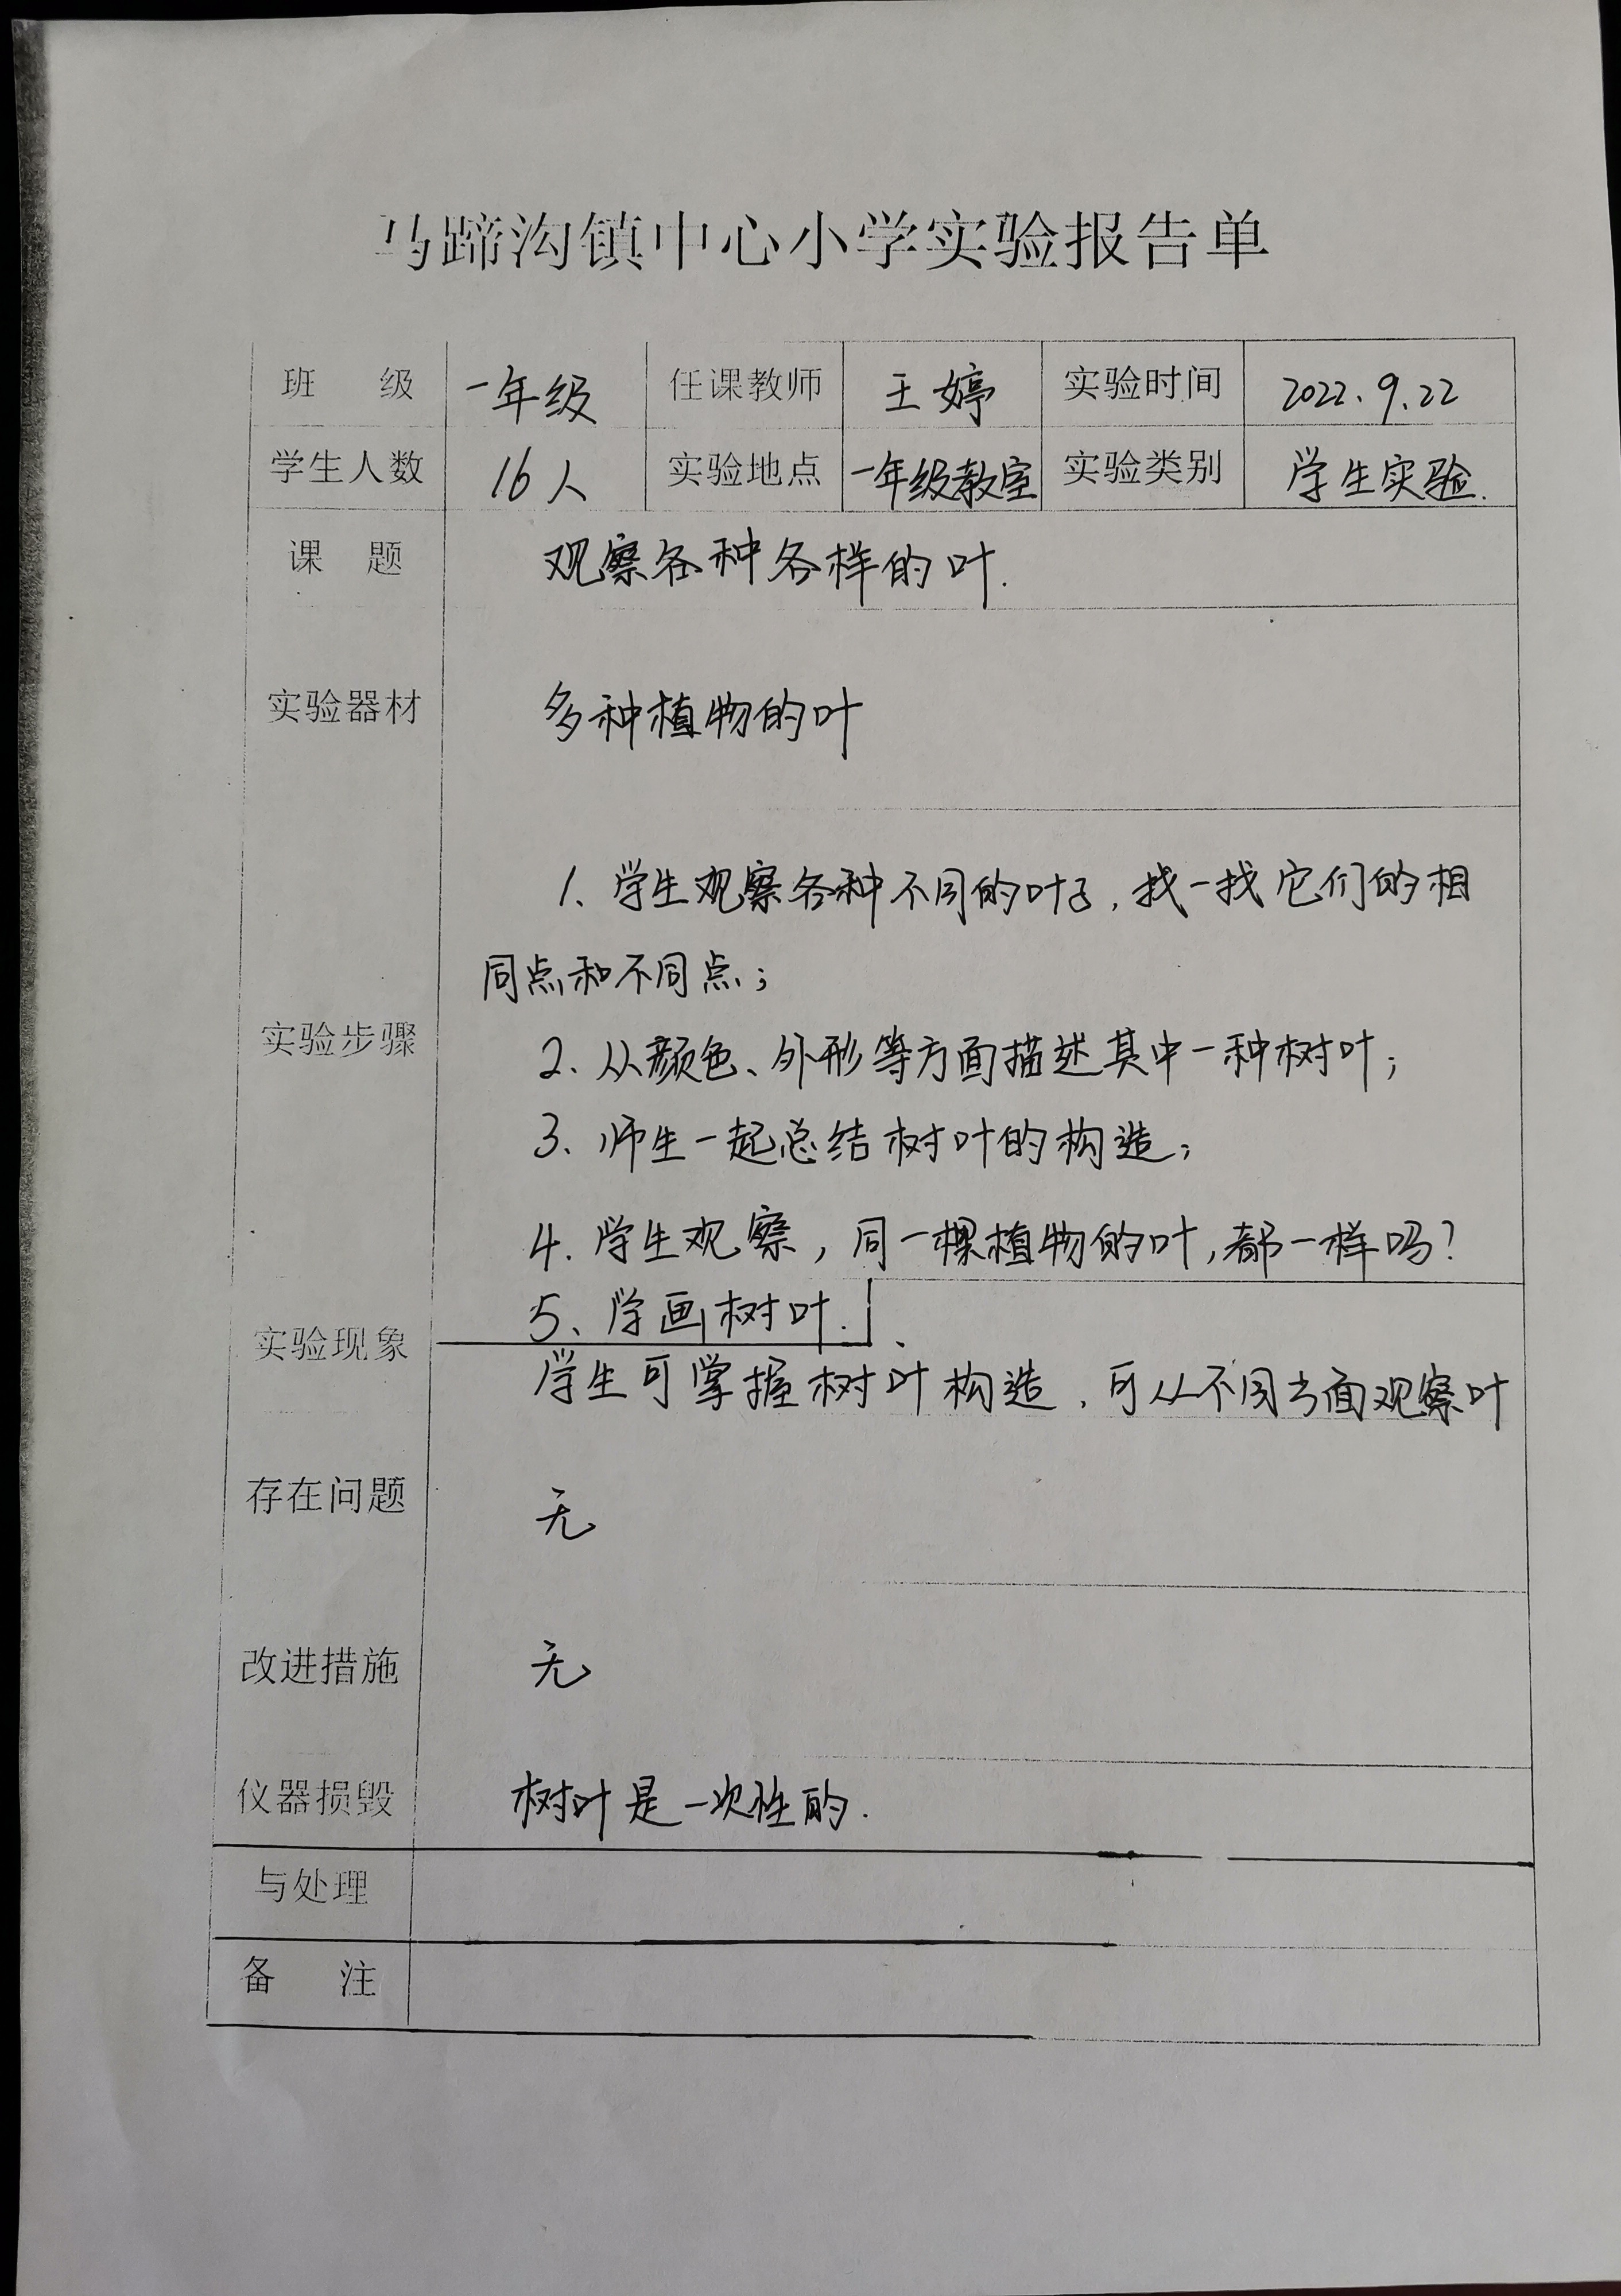 马蹄沟镇中心小学实验报告单
班 级 一年级 任课教师 王婷 实验时间 2022.9.22
学生人数 16人 实验地点 一年级教室 实验类别 学生实验.
课 题 观察各种各样的叶.
实验器材 多种植物的叶
1、学生观察各种不同的叶子,找一找它们的相
同点和不同点;
实验步骤 2、从颜色、外形等方面描述其中一种树叶;
3、师生一起总结树叶的构造;
4.学生观察,同一棵植物的叶,都一样吗?
5、学画树叶.
实验现象 学生可掌握树叶构造,可从不同方面观察叶
存在问题 无
改进措施 无
仪器损毁 树叶是一次性的.
与处理
备 注